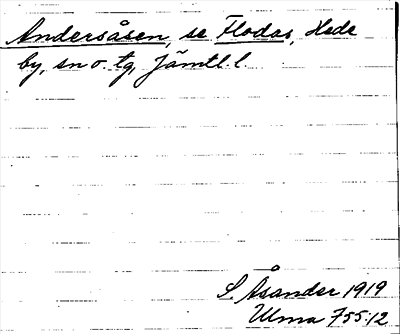 Andersåsen, se Flodas, Hede
by, sn o. tg, Jämtl.l.
S. Åsander 1919
Ulma 755:12